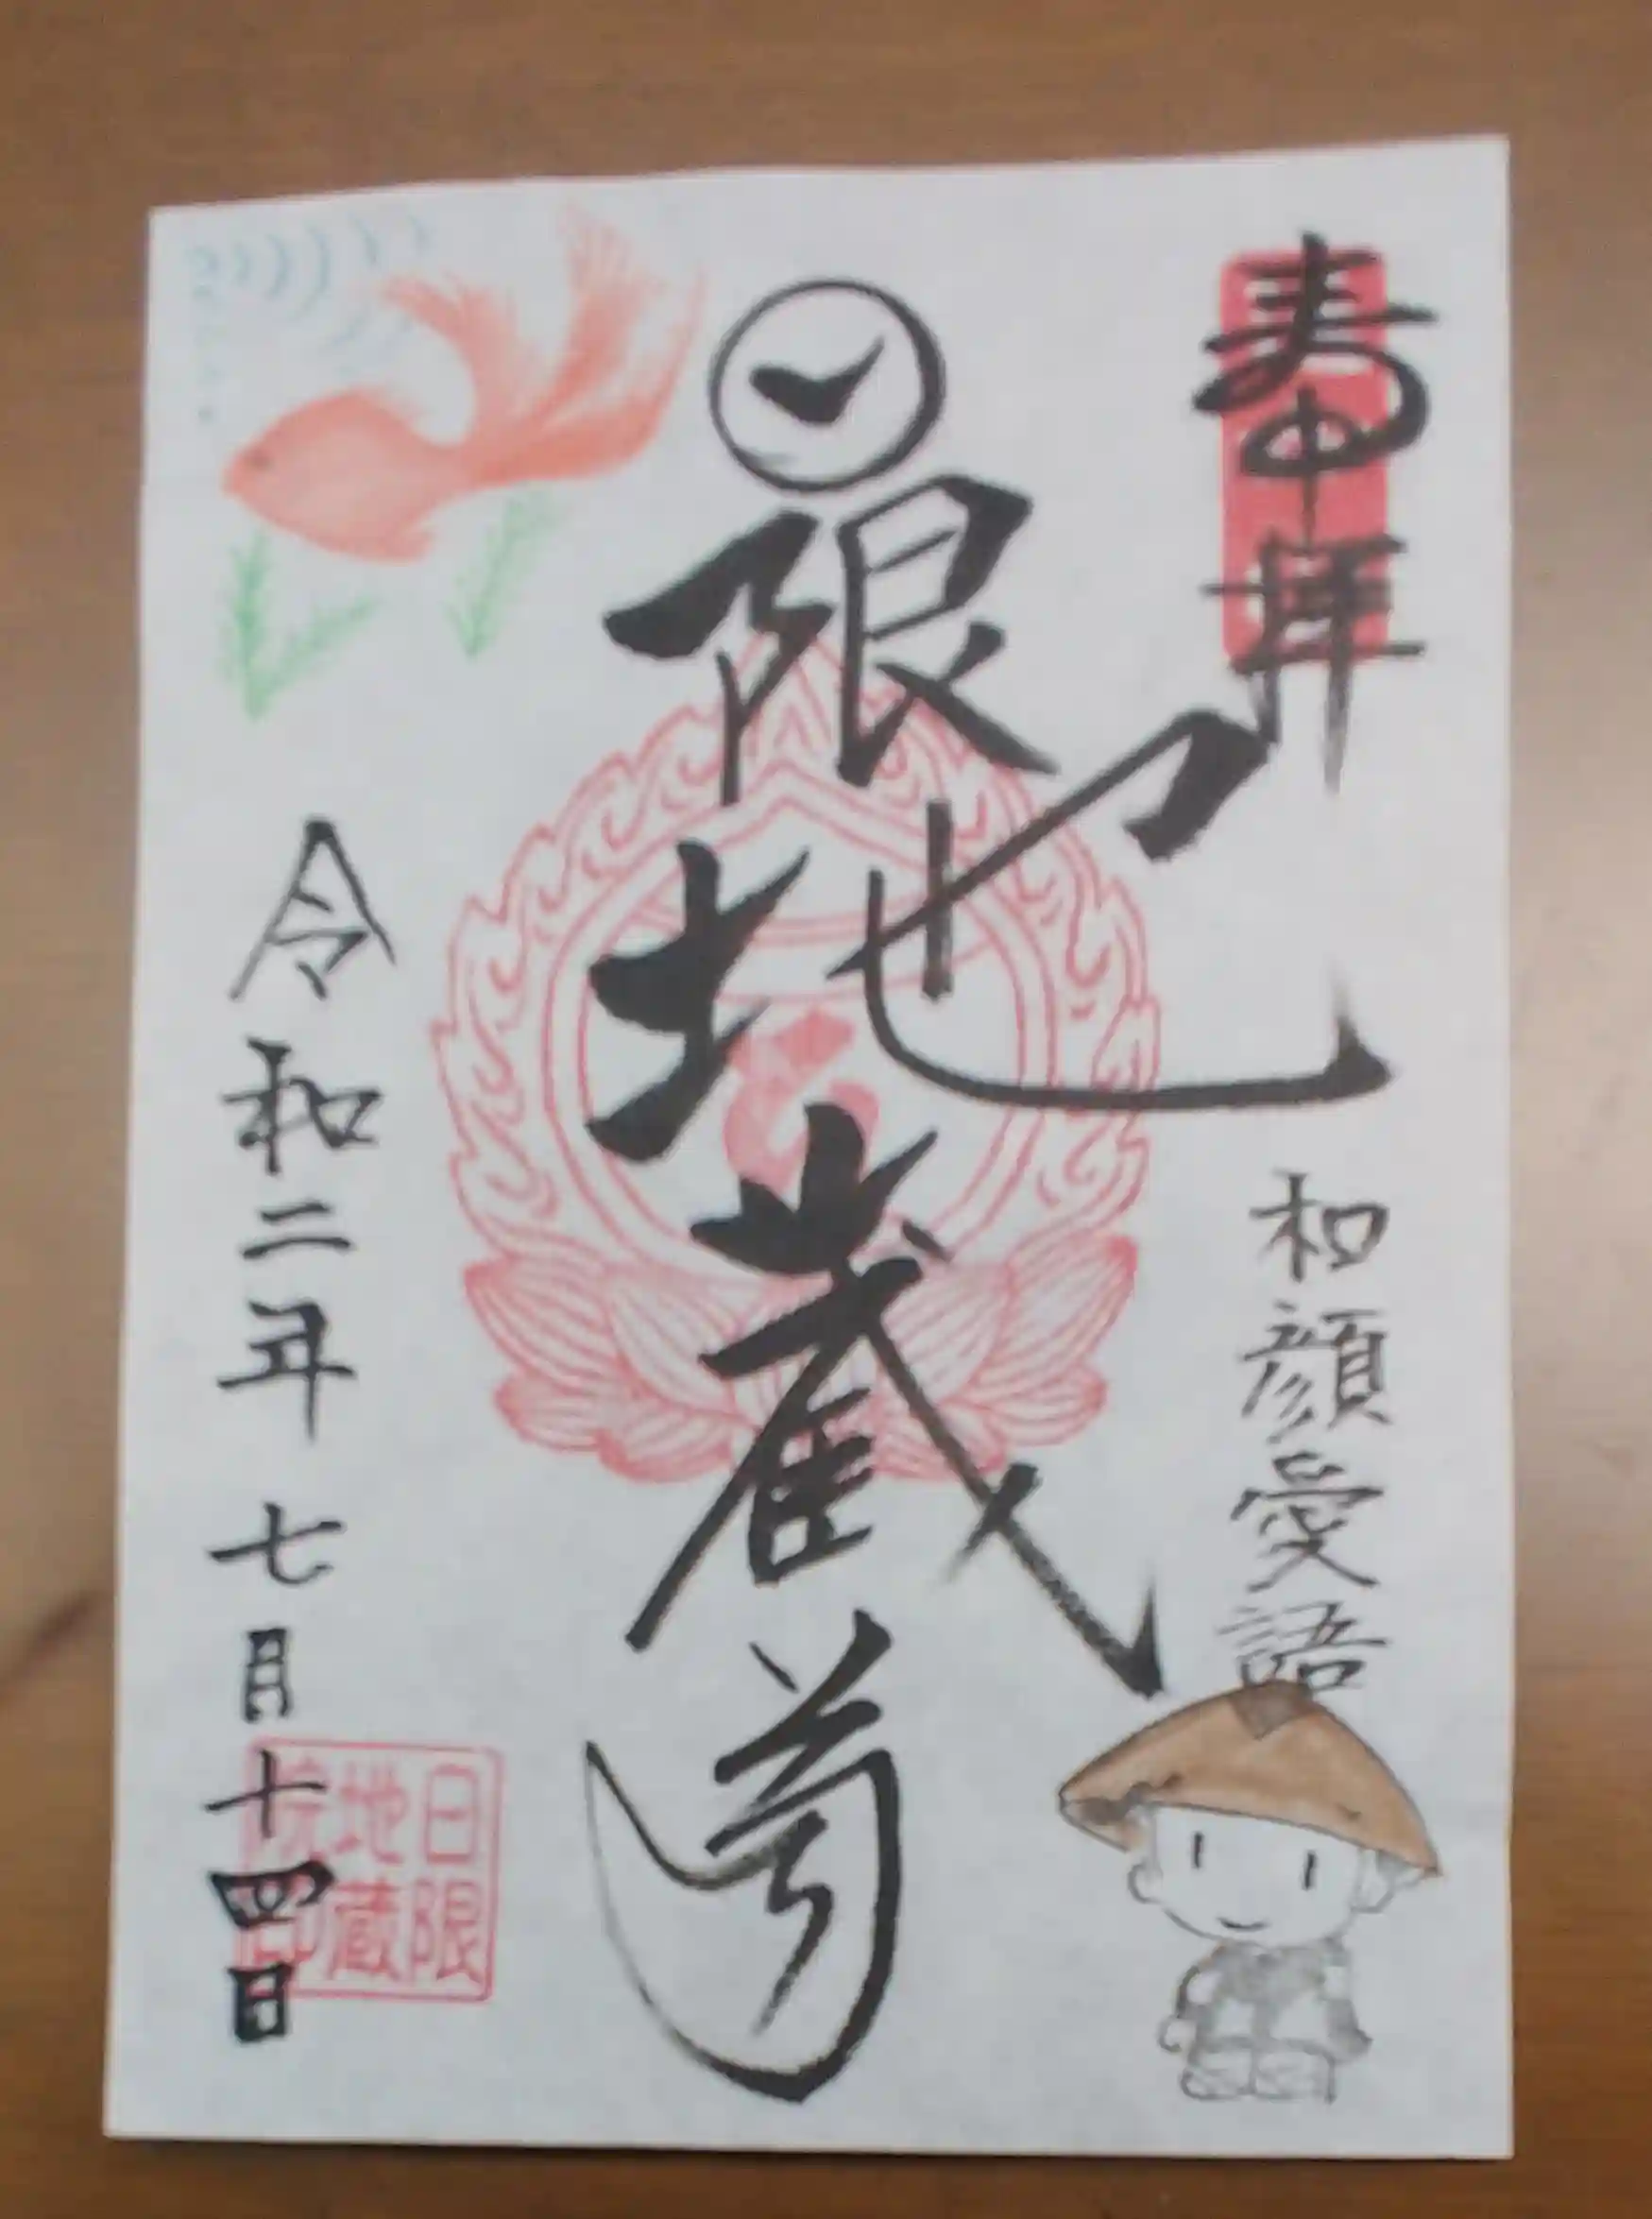 奉中拝
日限地蔵尊
和顔愛語
令和二年七月十四日
日限
地蔵
院印